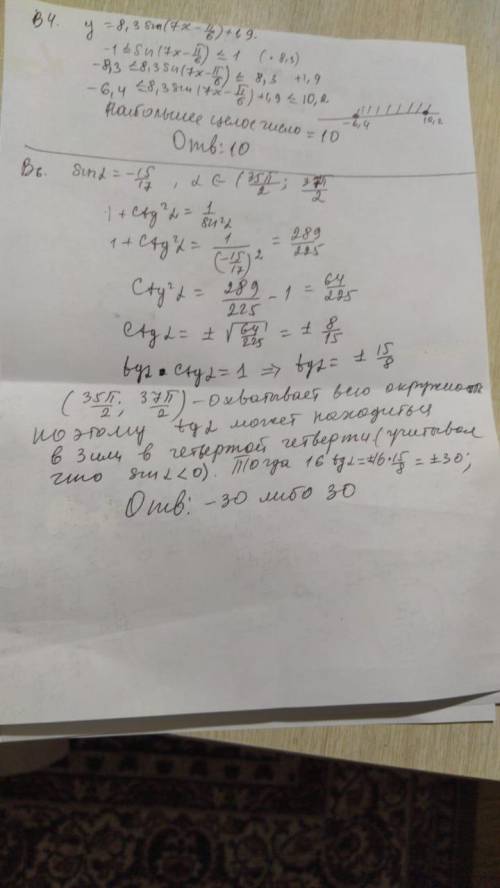 В4. y = 8,3 sin(7x - π/6) + 1,9.
-1 ≤ sin(7x - π/6) ≤ 1 (· 8,3)
-8,3 ≤ 8,3 sin(7x - π/6) ≤ 8,3 +1,9
-6,4 ≤ 8,3 sin(7x - π/6) + 1,9 ≤ 10,2
-6,4 10,2
Наибольшее целое число = 10
Отв: 10
В6. sin α = -15/17, α ∈ (35π/2; 37π/2
1 + ctg²α = 1/sin²α
1 + ctg²α = 1/(-15/17)² = 289/225
ctg²α = 289/225 - 1 = 64/225
ctg α = ± √64/225 = ± 8/15
tg α • ctg α = 1 ⇒ tg α = ± 15/8
(35π/2; 37π/2) - охватывает всю окружность
поэтому tg α может находиться
в 3 или в четвертой четверти (учитывая
что sin α < 0). Тогда 16 tg α = ±16·15/8 = ±30;
Отв: -30 либо 30